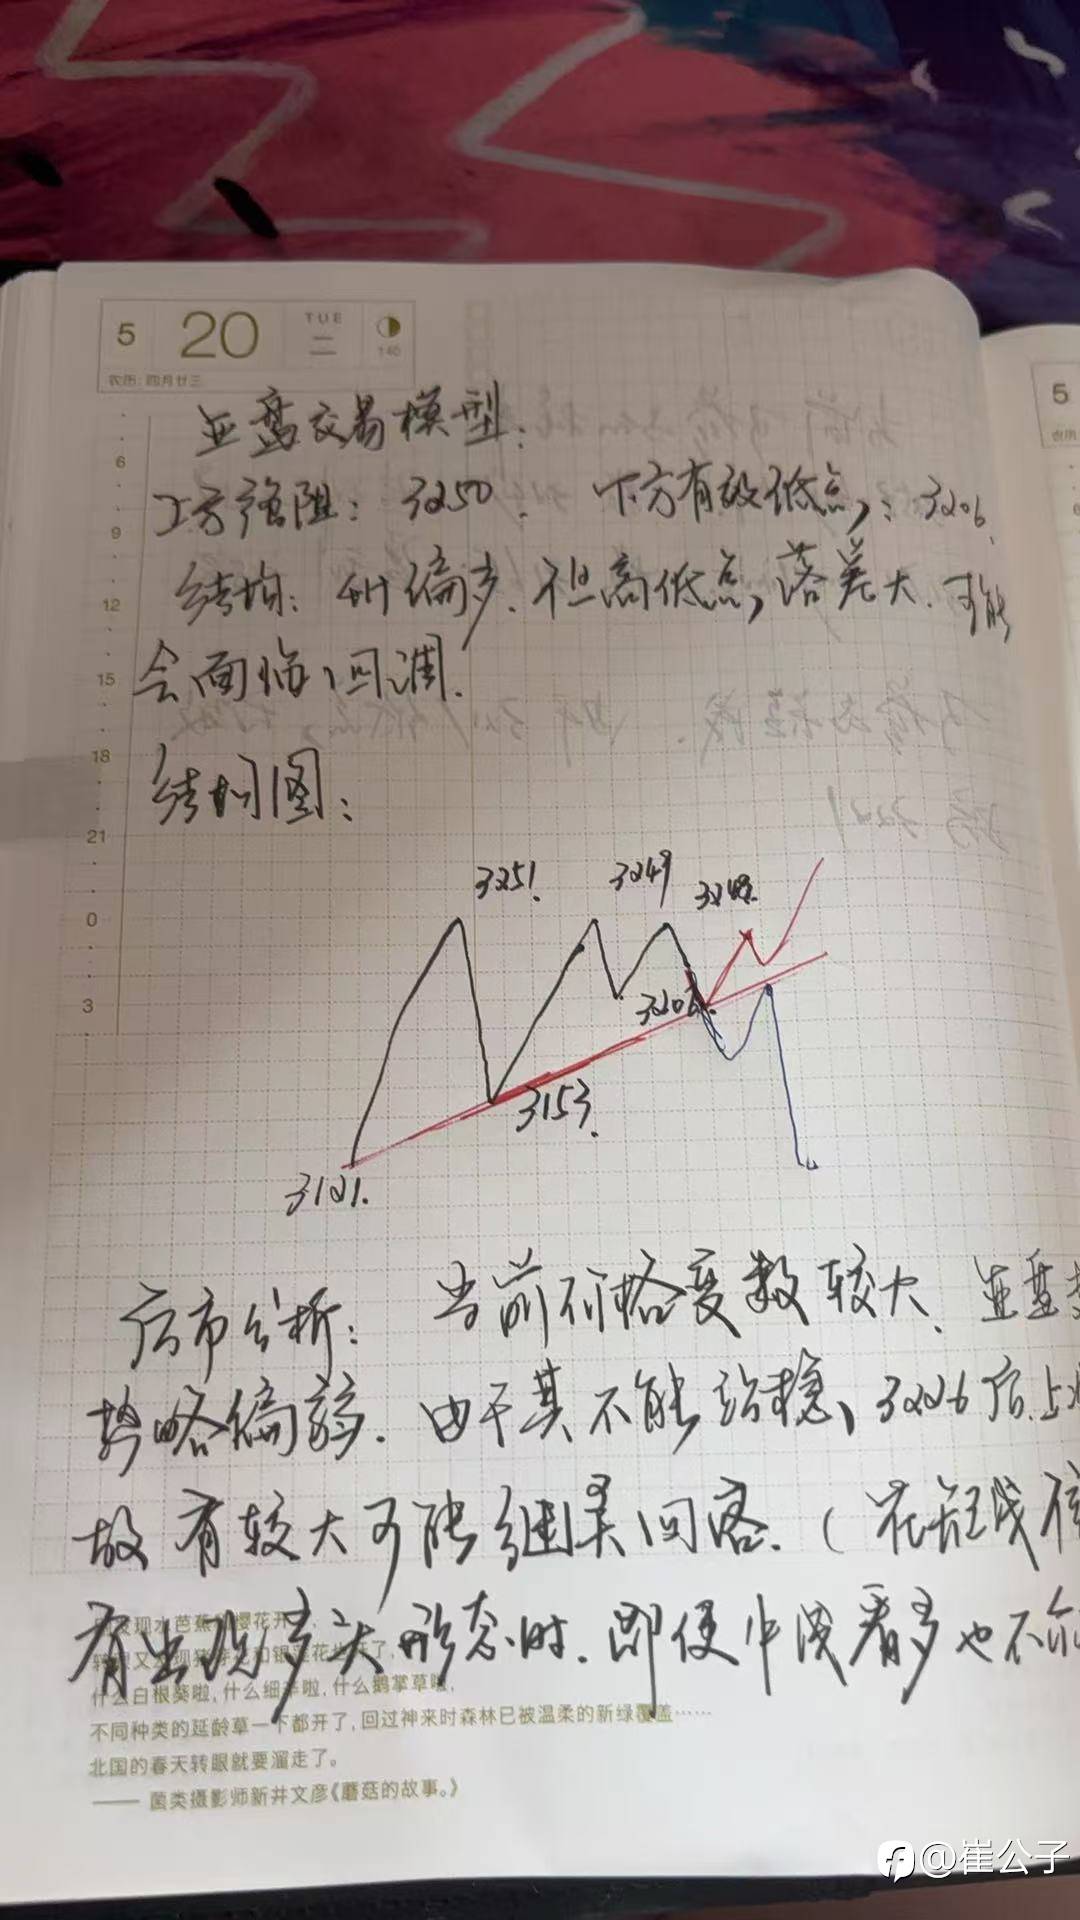 5 20 TUE 二 140
农历:四月廿三
亚盘交易模型:
上方强阻: 3250. 下方有效低点: 3206.
结构: 4H偏多. 但高低点落差大. 可能
会面临回调.
结构图:
6
9
12
15
18
21
0
3
3251.
3249
3206.
3153.
3121.
后市分析: 当前价格变数较大、亚盘
势略偏弱. 由于其不能站稳、3226后上
故有较大可能继续回落. (在短线
有出现多头形态时. 即便中线看多也不
发现水芭蕉 樱花开
和银莲花也开了,
什么白根葵啦,什么细辛啦,什么鹅掌草啦,
不同种类的延龄草一下都开了,回过神来时森林已被温柔的新绿覆盖……
北国的春天转眼就要溜走了。
—— 菌类摄影师新井文彦《蘑菇的故事。》
5
@崔公子